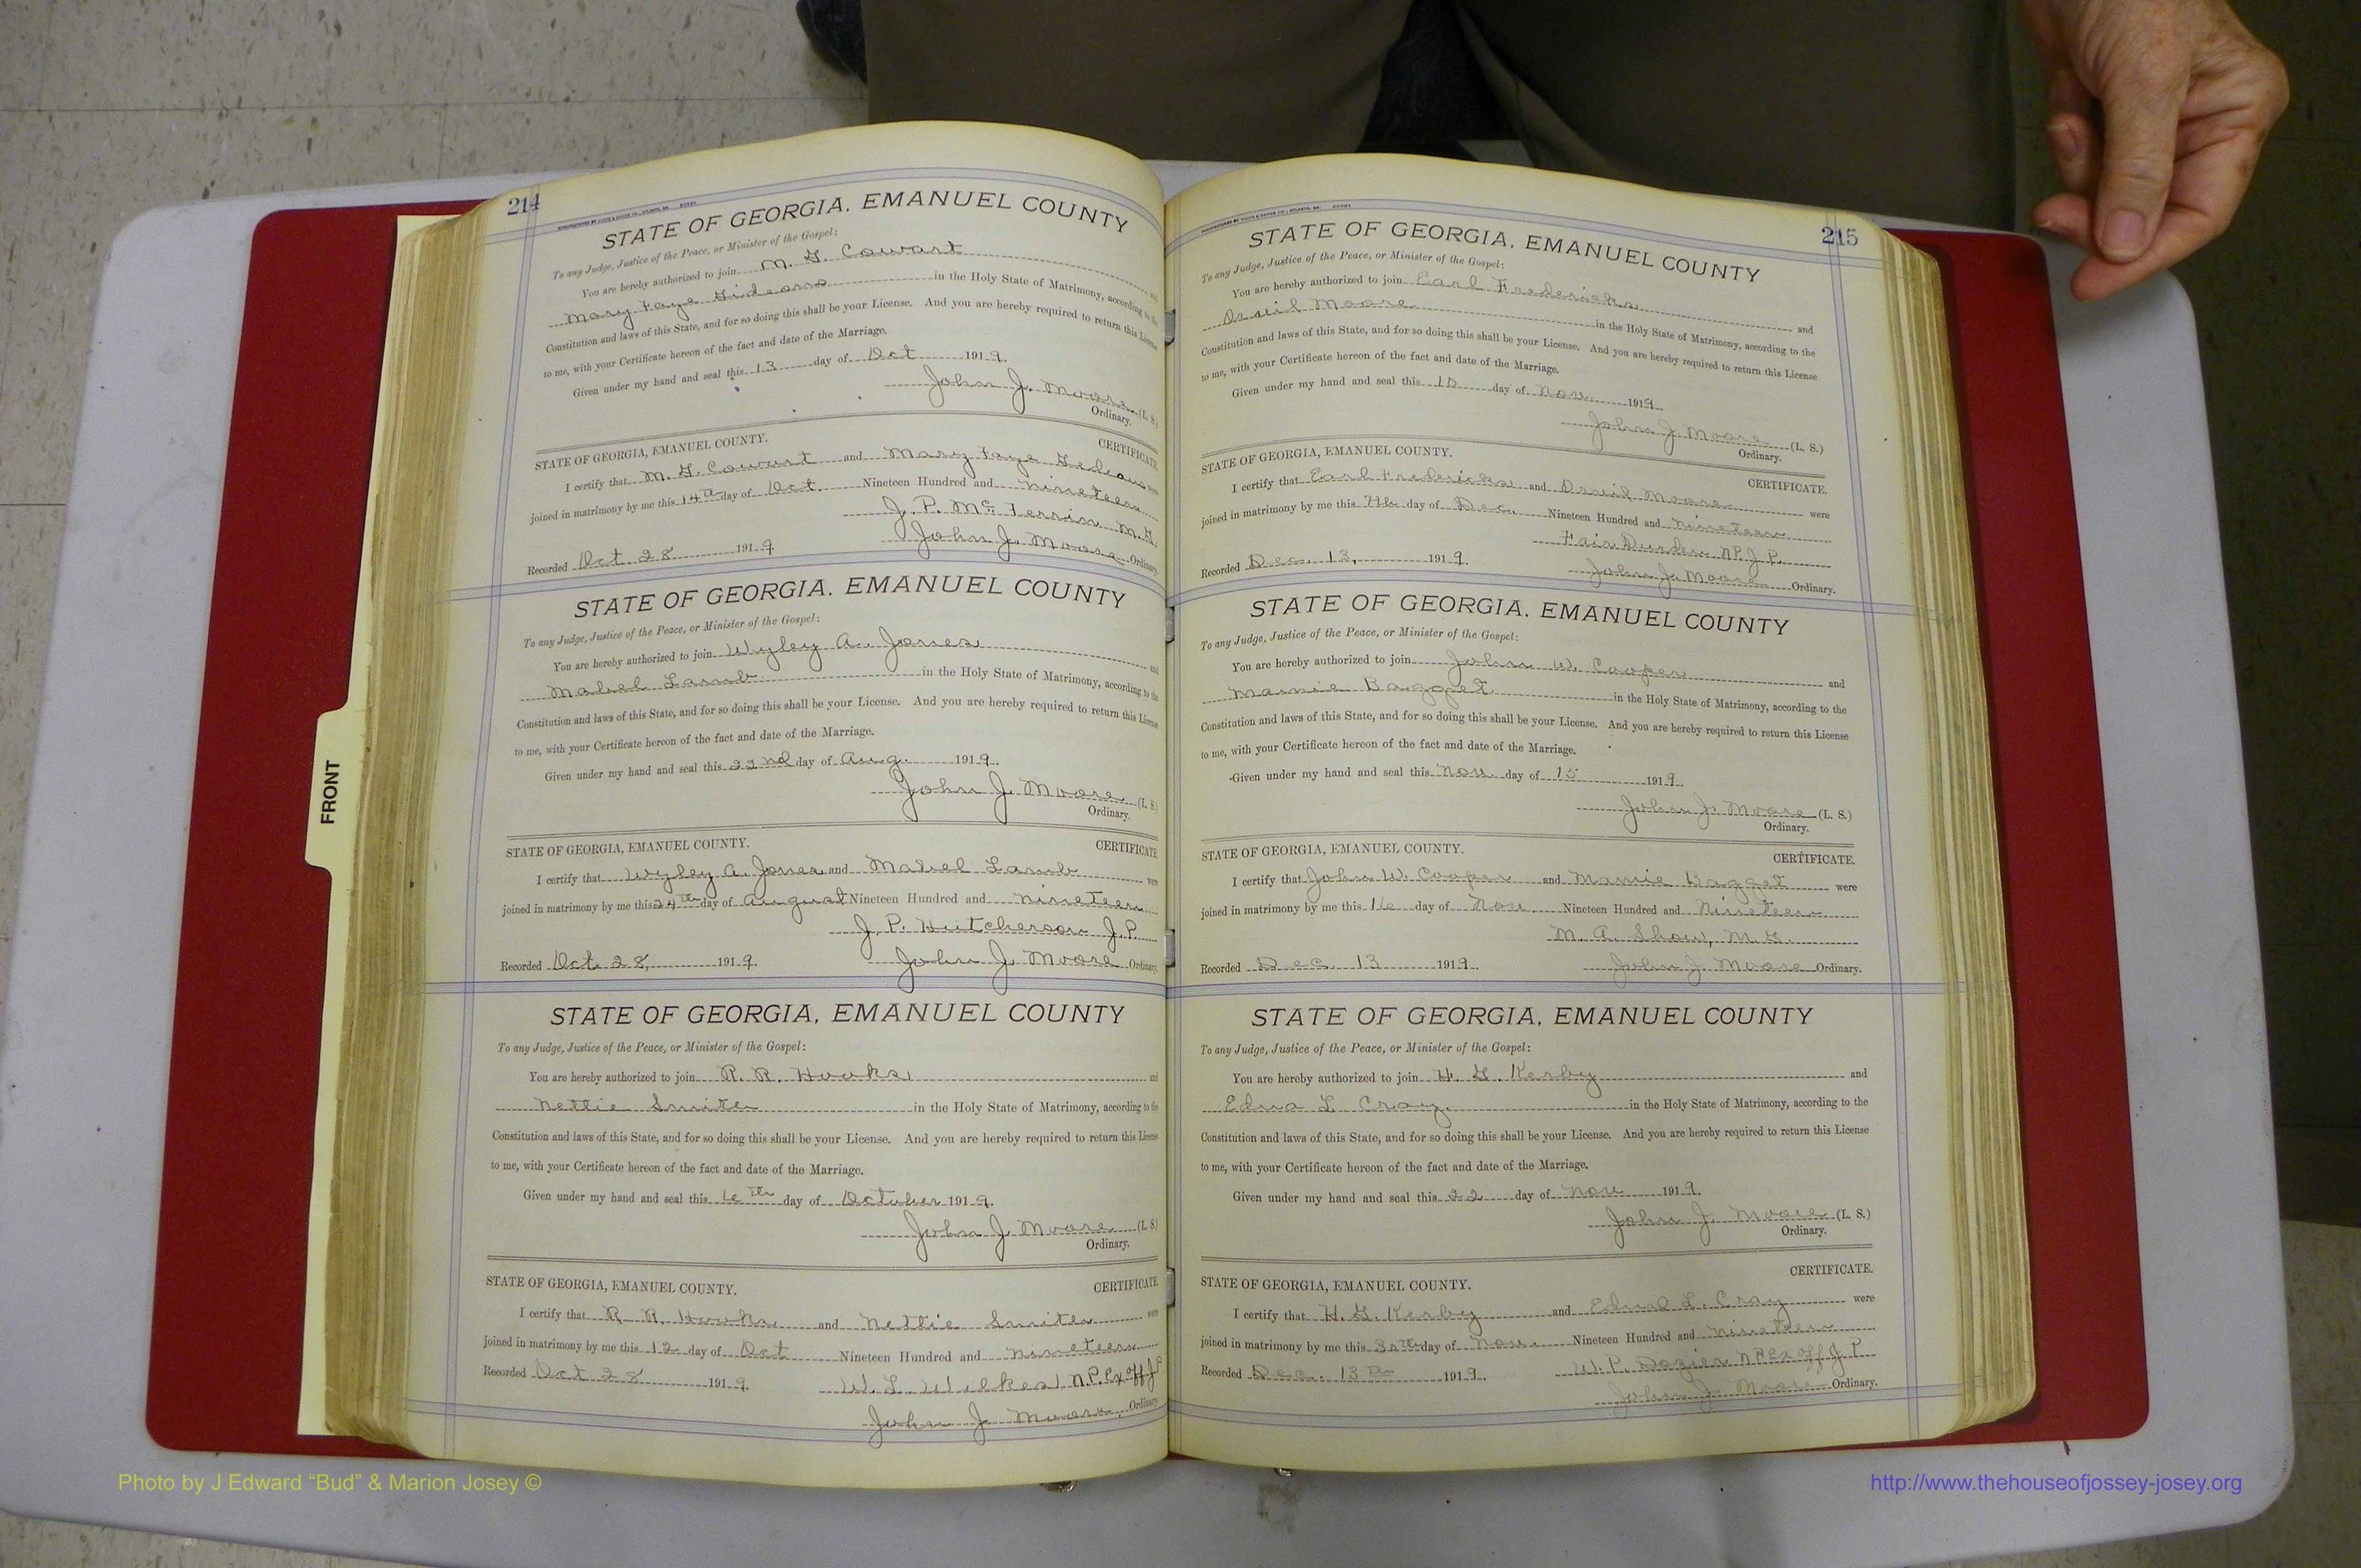 214
STATE OF GEORGIA, EMANUEL COUNTY
To any Judge, Justice of the Peace, or Minister of the Gospel:
You are hereby authorized to join M. G. Cowart and
Mary Faye Gideons in the Holy State of Matrimony, according to the
Constitution and laws of this State, and for so doing this shall be your License. And you are hereby required to return this License
to me, with your Certificate hereon of the fact and date of the Marriage.
Given under my hand and seal this 13 day of Oct 1919.
John J. Moore (L. S.)
Ordinary.
STATE OF GEORGIA, EMANUEL COUNTY. CERTIFICATE
I certify that M. G. Cowart and Mary Faye were
joined in matrimony by me this 14th day of Oct. Nineteen Hundred and nineteen
J. P. McFerrin M. G.
Recorded Oct 28 1919 John J. Moore Ordinary.
STATE OF GEORGIA, EMANUEL COUNTY
To any Judge, Justice of the Peace, or Minister of the Gospel:
You are hereby authorized to join Wyley A. Jones and
Mabel Lamb in the Holy State of Matrimony, according to the
Constitution and laws of this State, and for so doing this shall be your License. And you are hereby required to return this License
to me, with your Certificate hereon of the fact and date of the Marriage.
Given under my hand and seal this 22nd day of Aug. 1919.
John J. Moore (L. S)
Ordinary.
STATE OF GEORGIA, EMANUEL COUNTY. CERTIFICATE
I certify that Wyley A. Jones and Mabel Lamb were
joined in matrimony by me this 24th day of August Nineteen Hundred and nineteen
J. P. Hutcherson J. P.
Recorded Oct. 28, 1919. John J. Moore Ordinary.
STATE OF GEORGIA, EMANUEL COUNTY
To any Judge, Justice of the Peace, or Minister of the Gospel:
You are hereby authorized to join R. R. Hooks and
Nettie Smith in the Holy State of Matrimony, according to the
Constitution and laws of this State, and for so doing this shall be your License. And you are hereby required to return this License
to me, with your Certificate hereon of the fact and date of the Marriage.
Given under my hand and seal this day of October 1919.
John J. Moore (L. S)
Ordinary.
STATE OF GEORGIA, EMANUEL COUNTY. CERTIFICATE
I certify that R. R. Hooks and Nettie Smith were
joined in matrimony by me this 12 day of Oct Nineteen Hundred and nineteen
Recorded Oct 28 1919. W. L. Wilkes N.P. Ex off J P
John J. Moore, Ordinary.
215
STATE OF GEORGIA, EMANUEL COUNTY
To any Judge, Justice of the Peace, or Minister of the Gospel:
You are hereby authorized to join Earl Fredericks and
Moore in the Holy State of Matrimony, according to the
Constitution and laws of this State, and for so doing this shall be your License. And you are hereby required to return this License
to me, with your Certificate hereon of the fact and date of the Marriage.
Given under my hand and seal this 15 day of Nov. 1919.
John J. Moore (L. S.)
Ordinary.
STATE OF GEORGIA, EMANUEL COUNTY. CERTIFICATE.
I certify that Earl Fredericks and Moore were
joined in matrimony by me this 7th day of Dec. Nineteen Hundred and nineteen
Fair Durden N.P.J.P.
Recorded Dec. 13, 1919. John J. Moore Ordinary.
STATE OF GEORGIA, EMANUEL COUNTY
To any Judge, Justice of the Peace, or Minister of the Gospel:
You are hereby authorized to join John W. Cooper and
Mamie Bagget in the Holy State of Matrimony, according to the
Constitution and laws of this State, and for so doing this shall be your License. And you are hereby required to return this License
to me, with your Certificate hereon of the fact and date of the Marriage.
Given under my hand and seal this Nov. day of 15 1919.
John J. Moore (L. S.)
Ordinary.
STATE OF GEORGIA, EMANUEL COUNTY. CERTIFICATE.
I certify that John W. Cooper and Mamie Bagget were
joined in matrimony by me this 16 day of Nov. Nineteen Hundred and nineteen
M. A. Shaw, M. G.
Recorded Dec. 13 1919. John J. Moore Ordinary.
STATE OF GEORGIA, EMANUEL COUNTY
To any Judge, Justice of the Peace, or Minister of the Gospel:
You are hereby authorized to join H. G. Kerby and
Edna L. Cray in the Holy State of Matrimony, according to the
Constitution and laws of this State, and for so doing this shall be your License. And you are hereby required to return this License
to me, with your Certificate hereon of the fact and date of the Marriage.
Given under my hand and seal this 22 day of Nov 1919.
John J. Moore (L. S.)
Ordinary.
STATE OF GEORGIA, EMANUEL COUNTY. CERTIFICATE.
I certify that H. G. Kerby and L. Cray were
joined in matrimony by me this day of Nov. Nineteen Hundred and nineteen
Recorded Dec. 13th 1919. W. P. Dozier N P Ex off J. P
John J. Moore Ordinary.
FRONT
Photo by J Edward “Bud” & Marion Josey ©
http://www.thehouseofjossey-josey.org